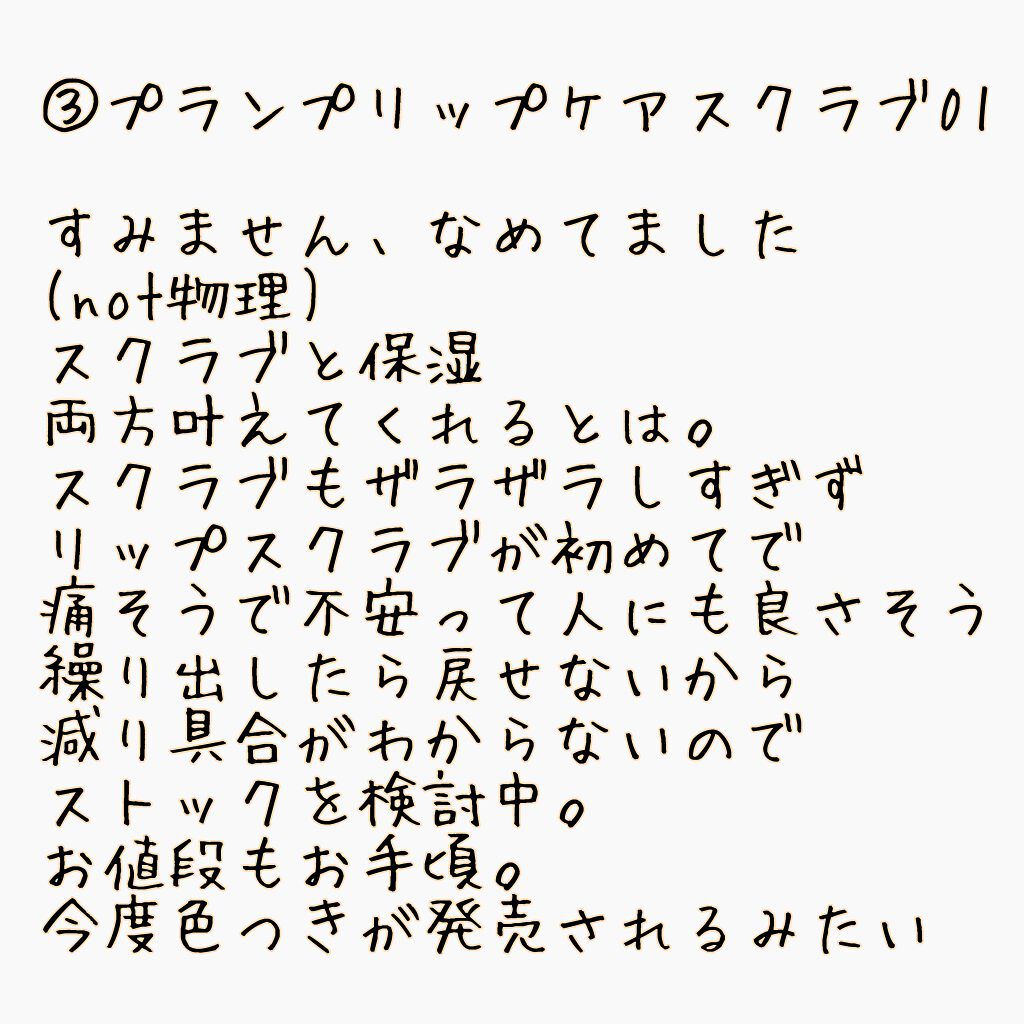 ③プランプリップケアスクラブ01
すみません、なめてました
(not物理)
スクラブと保湿
両方叶えてくれるとは。
スクラブもザラザラしすぎず
リップスクラブが初めてで
痛そうで不安って人にも良さそう
繰り出したら戻せないから
減り具合がわからないので
ストックを検討中。
お値段もお手頃。
今度色つきが発売されるみたい